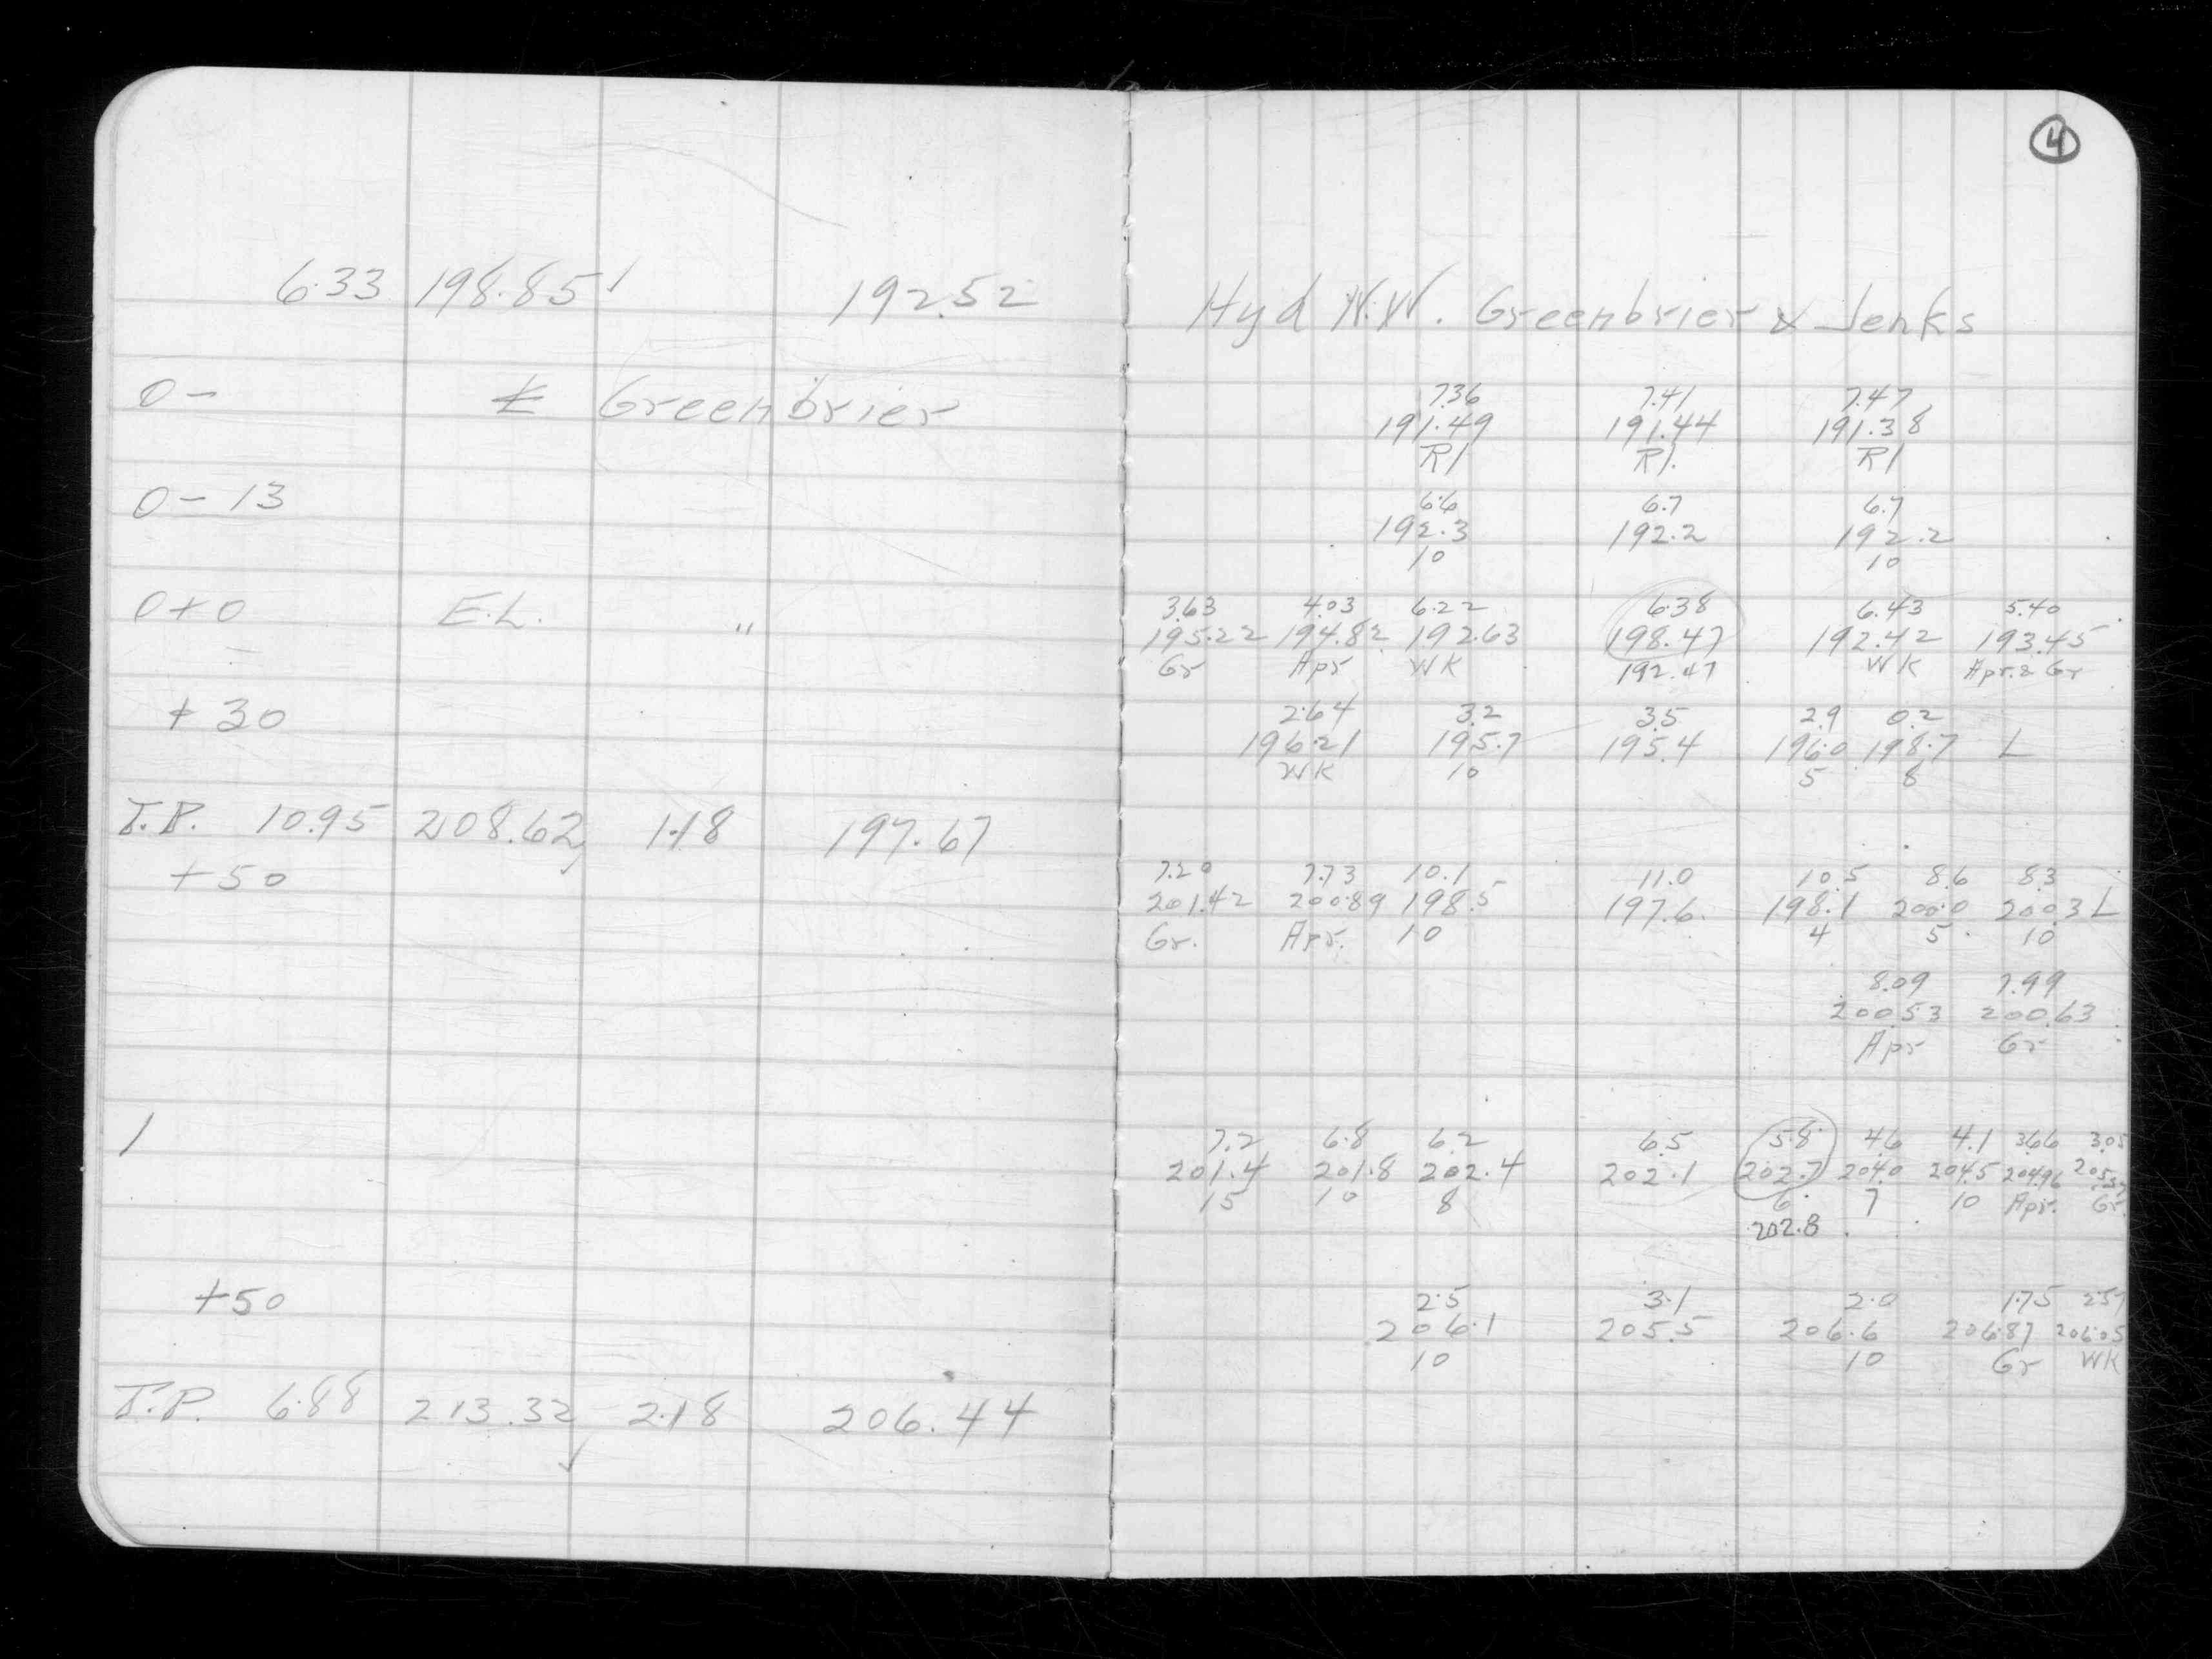 4
6.33 198.85 192.52 Hyd N.W. Greenbrier & Jenks
0- ⅊ Greenbrier
7.36 7.41 7.47
191.49 191.44 191.38
R1 R1. R1
0-13
6.6 6.7 6.7
192.3 192.2 192.2
10 10
0+0 E.L. "
3.63 4.03 6.22 6.38 6.43 5.40
195.22 194.82 192.63 198.47 192.42 193.45
Gr Apr WK 192.47 WK Apr. & Gr
+30
2.64 3.2 3.5 2.9 0.2
196.21 195.7 195.4 196.0 198.7 L
WK 10 5 8
T.P. 10.95 208.62 1.18 197.67
+50
7.20 7.73 10.1 11.0 10.5 8.6 8.3
201.42 200.89 198.5 197.6 198.1 200.0 200.3 L
Gr. Apr. 10 4 5 10
8.09 7.99
200.53 200.63
Apr Gr
1
7.2 6.8 6.2 6.5 5.8 4.6 4.1 3.66 3.05
201.4 201.8 202.4 202.1 202.7 204.0 204.5 204.96 205.57
15 10 8 6 7 10 Apr. Gr.
202.8
+50
2.5 3.1 2.0 1.75 2.57
206.1 205.5 206.6 206.87 206.05
10 10 Gr WK
T.P. 6.88 213.32 2.18 206.44